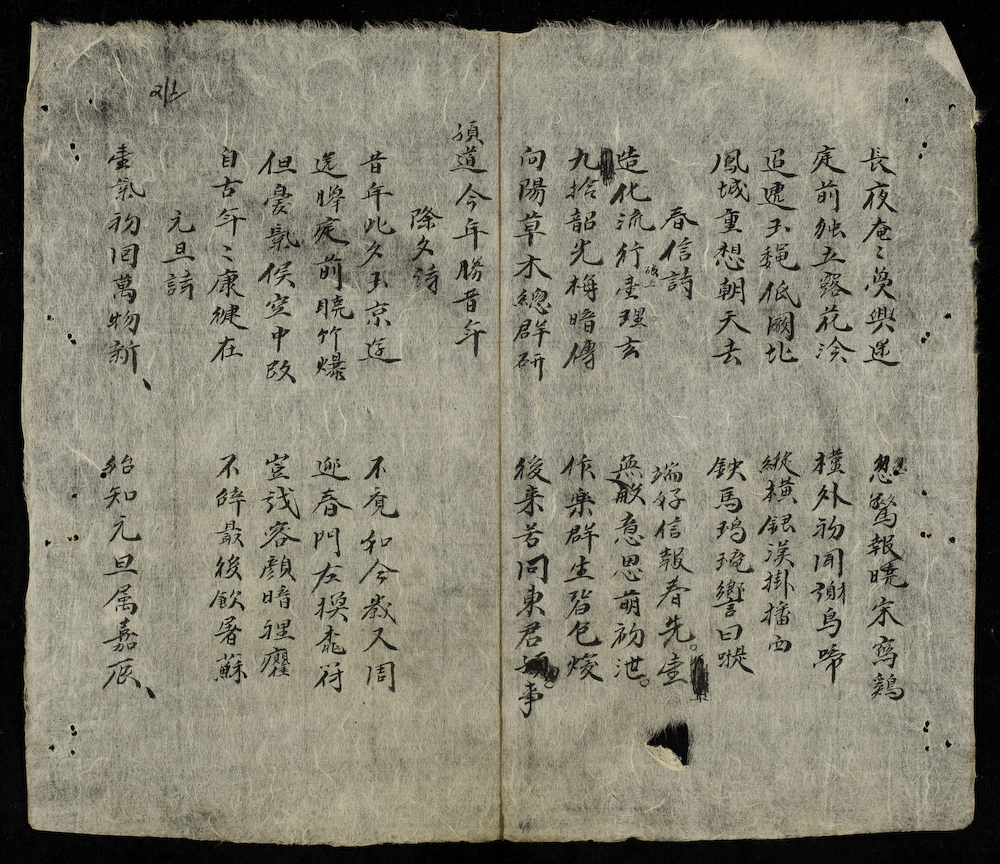 長夜庵〻夢與迷 忽驚報曉宋窓鷄
庭前独立露花冷 檻外初聞謝鳥啼
迢遞玉繩低闕北 縱橫銀漢掛播西
鳳城重想朝天去 鉄馬瑪琬響日蹏
春信詩 端好信報春先。壹
造化流行壹理玄 無敵意思萌初泄。
九拾韶光梅暗傳 作樂群生皆包煖
向陽草木總群研 後来若问東君事
須道今年勝昔年
除夕詩
昔年此夕玉京遊 不覓和今歲又周
送曎庭前聽竹爆 迎春門左換桃符
但憂氣候空中改 豈識容顏暗裡癯
自古年〻康健在 不醉最後飲屠蘇
元旦詩
壹氣初回萬物新、 紹知元旦属嘉辰、